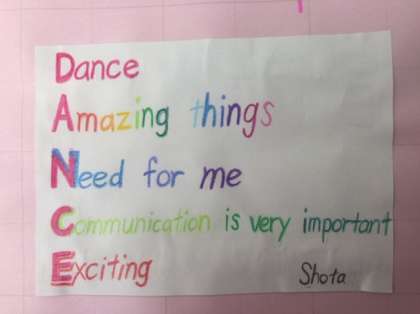 Dance
Amazing things
Need for me
Communication is very important
Exciting
Shota